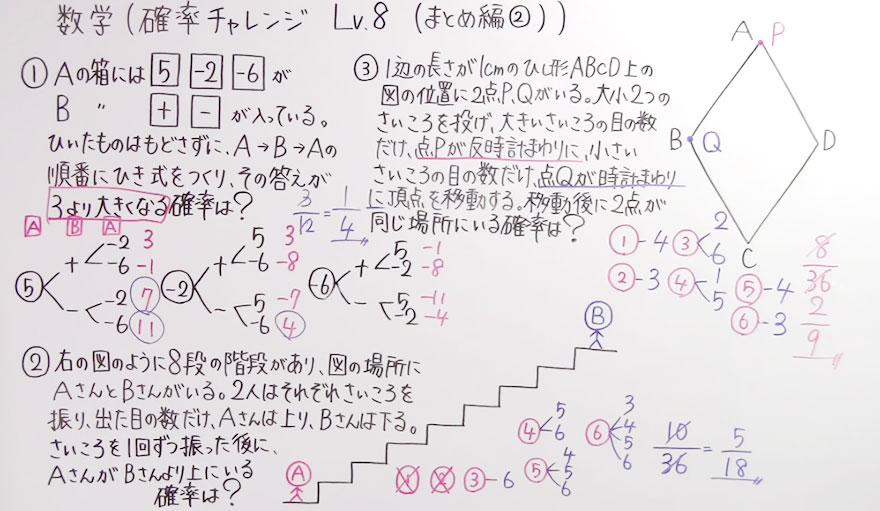 数学(確率チャレンジ Lv.8 (まとめ編②))
① Aの箱には 5 -2 -6 が
B 〃 + - が入っている。
ひいたものはもどさずに、A→B→Aの
順番にひき式をつくり、その答えが
3より大きくなる確率は?
3/12 = 1/4
A B A
5 + -2 3
-6 -1
- -2 7
-6 11
-2 + 5 3
-6 -8
- 5 -7
-6 4
-6 + 5 -1
-2 -8
- 5 -11
-2 -4
② 右の図のように8段の階段があり、図の場所に
AさんとBさんがいる。2人はそれぞれさいころを
振り、出た目の数だけ、Aさんは上り、Bさんは下る。
さいころを1回ずつ振った後に、
AさんがBさんより上にいる
確率は?
A
B
① ② ③-6
④ 5
6
⑤ 4
5
6
⑥ 3
4
5
6
10/36 = 5/18
③ 1辺の長さが1cmのひし形ABCD上の
図の位置に2点P、Qがいる。大小2つの
さいころを投げ、大きいさいころの目の数
だけ、点Pが反時計まわりに、小さい
さいころの目の数だけ、点Qが時計まわり
に頂点を移動する。移動後に2点が
同じ場所にいる確率は?
A P
B Q
D
C
①-4 ③ 2
6
②-3 ④ 1
5
⑤-4
⑥-3
8/36
2/9